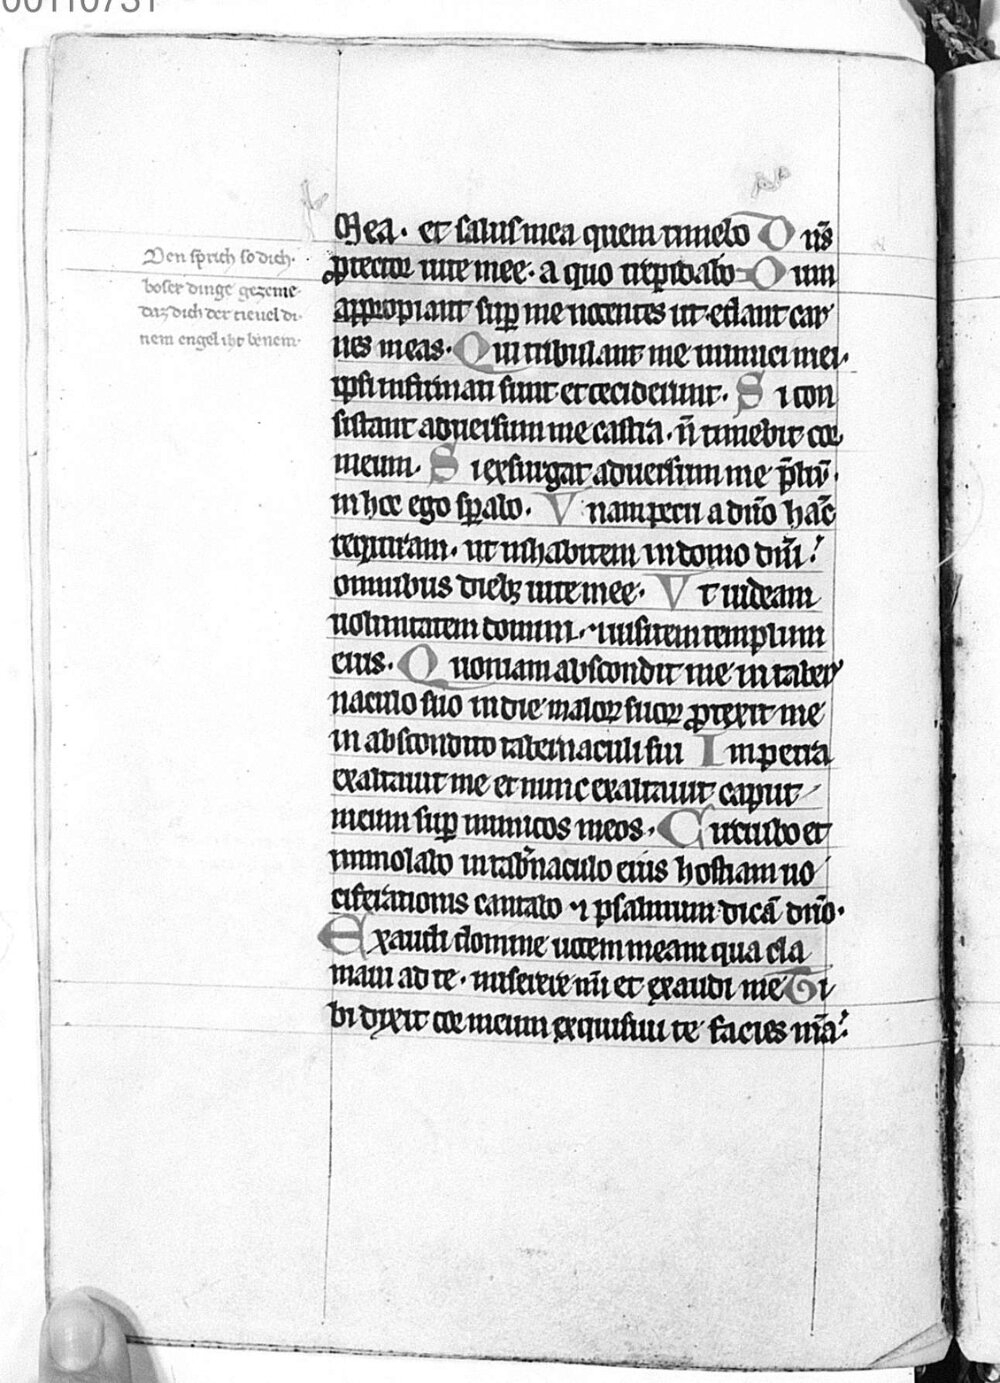 00110731
Den sprich so dich.
boser dinge gezeme.
daz dich der tieuel di-
nem engel iht benem.
Mea. et salus mea quem timebo Dn̄s
ꝓtector uite mee. a quo trepidabo Dum
appropiant suꝑ me nocentes ut edant car
nes meas. Qui tribulant me inimici mei.
ipsi infirmati sunt et ceciderunt. Si con
sistant aduersum me castra. n̄ timebit cor
meum. Si exsurgat aduersum me p̄liū.
in hoc ego sꝑabo. Vnam pecii a dn̄o hāc
requiram. ut inhabitem in domo dn̄i.
omnibus diebꝫ uite mee. Vt uideam
uoluntatem domini. ⁊ uisitem templum
eius. Quoniam abscondit me in taber
naculo suo in die maloꝝ suoꝝ ꝓtexit me
in abscondito tabernaculi sui In petra
exaltauit me et nunc exaltauit caput
meum suꝑ inimicos meos. Circuibo et
immolabo in tab̄naculo eius hostiam uo
ciferationis cantabo ⁊ psalmum dicā dn̄o.
Exaudi domine uocem meam qua cla
maui ad te. miserere m̄i et exaudi me Ti
bi dixit cor meum exquisiui te facies m̄a.